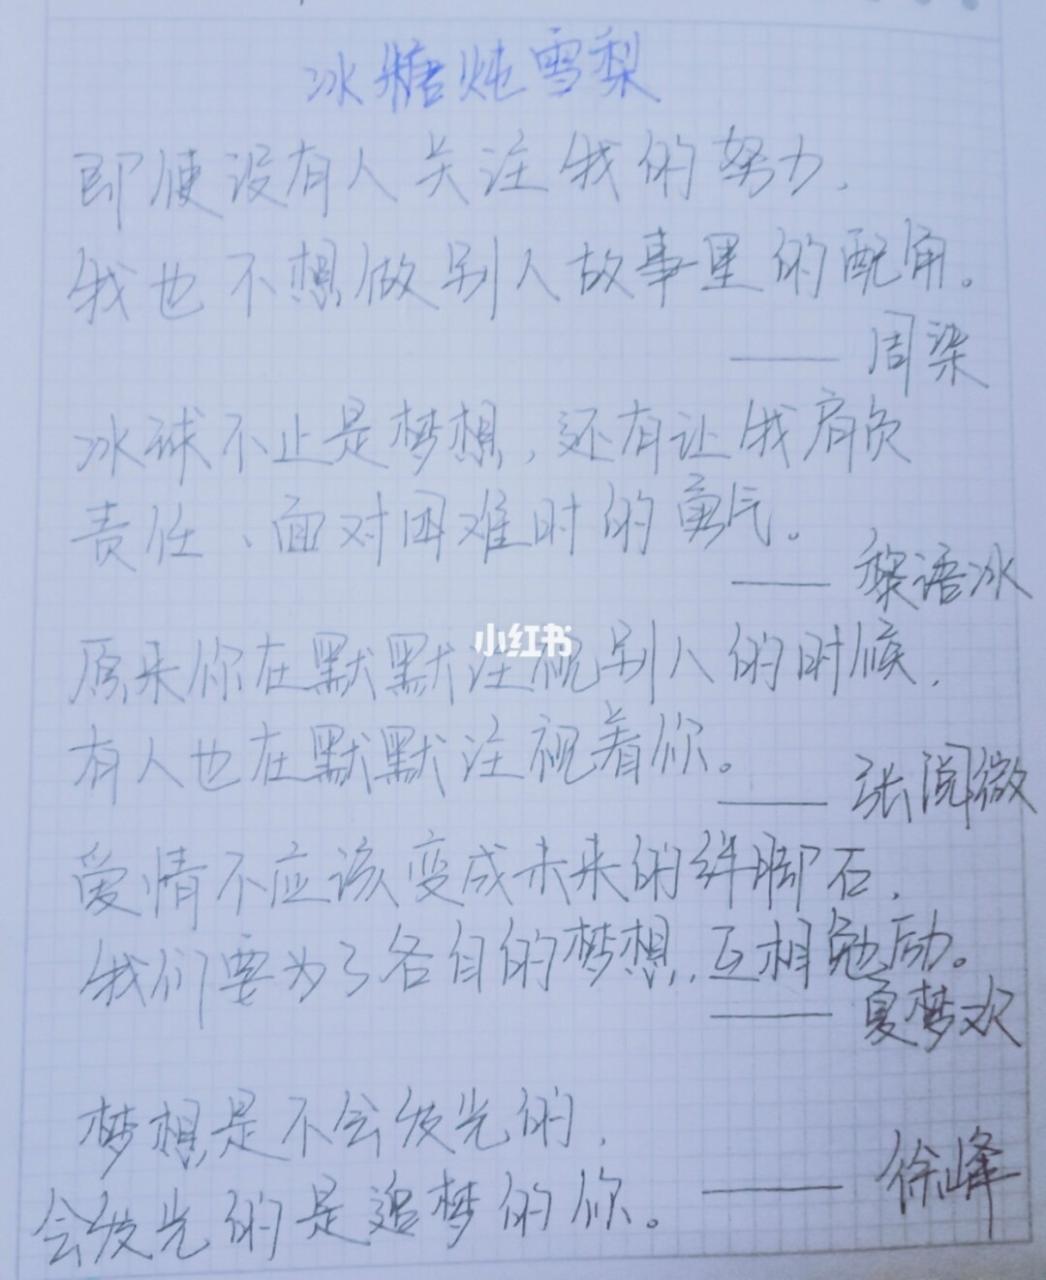 冰糖炖雪梨
即便没有人关注我的努力,
我也不想做别人故事里的配角。
—— 周染
冰球不止是梦想,还有让我肩负
责任、面对困难时的勇气。
—— 黎语冰
小红书
原来你在默默注视别人的时候,
有人也在默默注视着你。
—— 张阅微
爱情不应该变成未来的绊脚石,
我们要为了各自的梦想,互相勉励。
—— 夏梦欢
梦想是不会发光的,
—— 徐峰
会发光的是追梦的你。